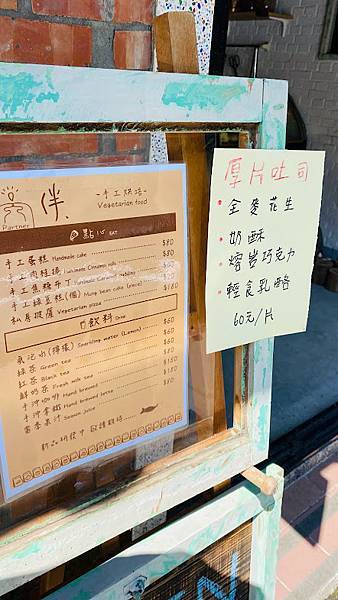 伴
Partner
-手工烘焙-
Vegetarian food
點心 EAT
手工蛋糕 Handmade cake $80
手工肉桂捲 Handmade Cinnamon rolls $80
手工焦糖布丁 Handmade Caramel Pudding $80
手工綠豆糕(個) Mung bean cake (piece)
私房披薩 Vegetarian pizza
飲料 Drink
氣泡水(檸檬) Sparkling water (Lemon)
綠茶 Green tea
紅茶 Black tea
鮮奶茶 Fresh milk tea
手沖咖啡 Hand brewed
手沖拿鐵 Hand brewed latte
當季果汁 Season juice
新品研發中 敬請期待
厚片吐司
全麥花生
奶酥
熔岩巧克力
輕食乳酪
60元/片